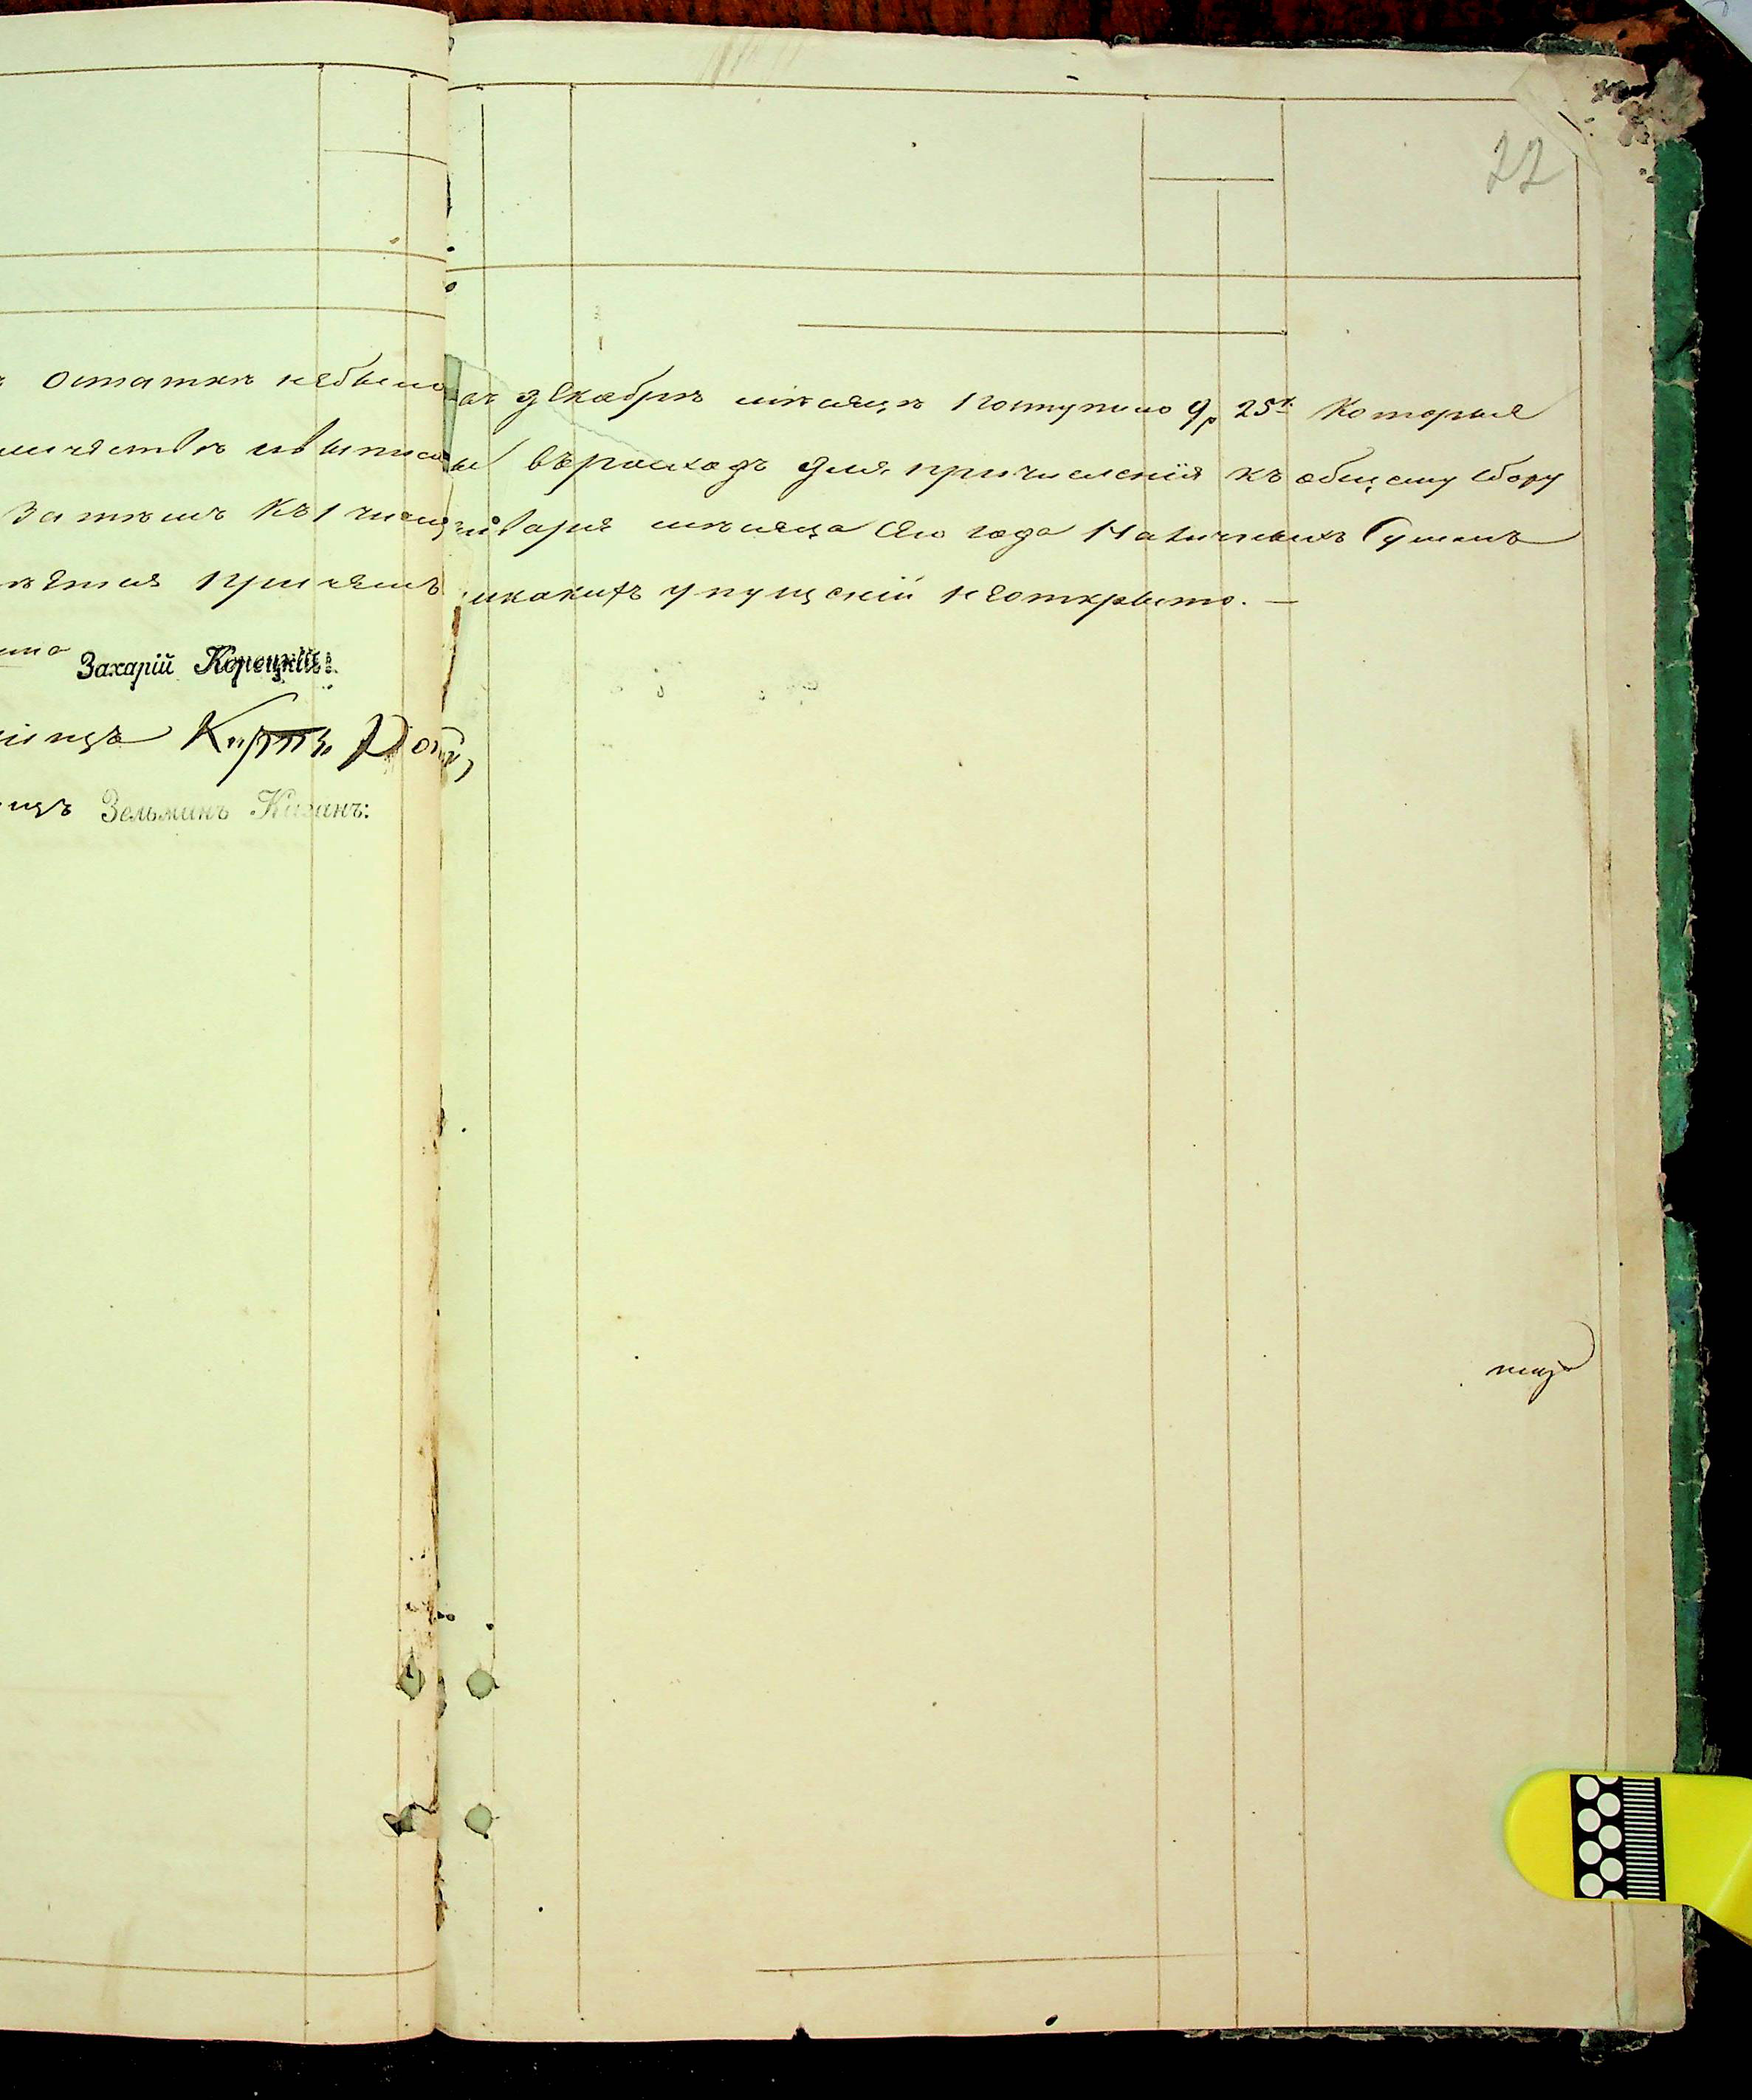 22
остаткѣ небыло въ декабрѣ мѣсяцѣ поступило 9р 25к которые
выписаны въ расходъ для причисленія къ общему сбору
Затѣмъ къ 1 числу января мѣсяца сего года наличныхъ суммъ
причемъ никакихъ упущеній неоткрыто. —
Захарій Корецкій:
Зельманъ Каганъ: